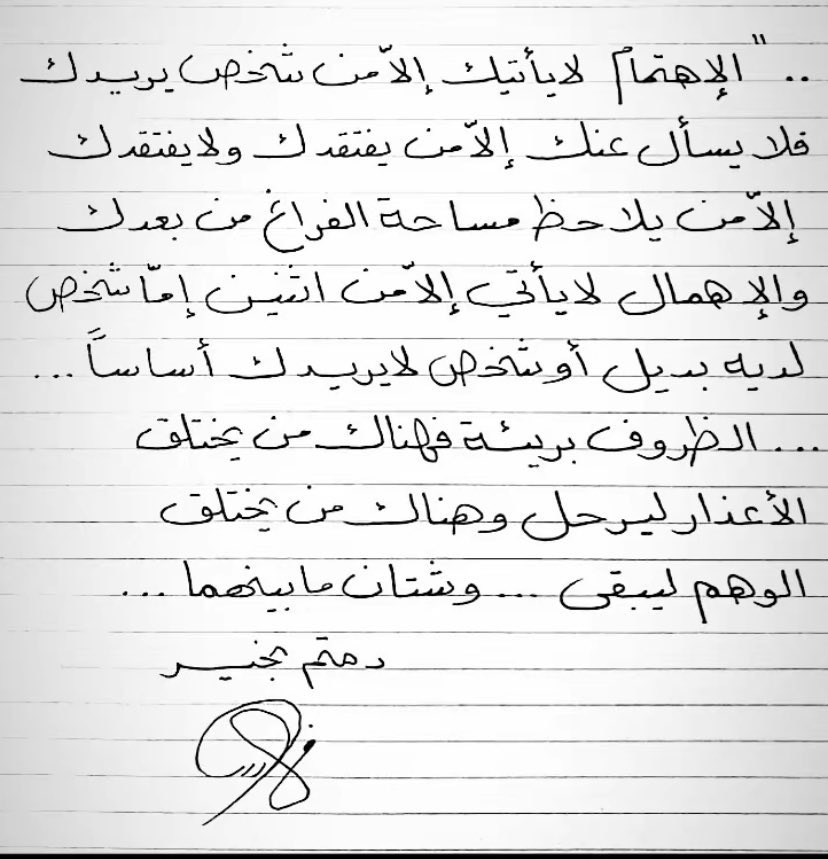 .. " الإهتمام لايأتيك إلاّ من شخص يريدك
فلا يسأل عنك إلاّ من يفتقدك ولايفتقدك
إلاّ من يلاحظ مساحة الفراغ من بعدك
والإهمال لايأتي إلاّ من اثنين إمّا شخص
لديه بديل أو شخص لايريدك أساساً ...
... الظروف بريئة فهناك من يختلق
الأعذار ليرحل وهناك من يختلق
الوهم ليبقى ... وشتان مابينهما ...
دمتم بخير